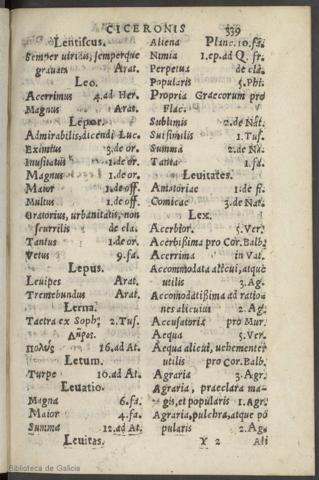 CICERONIS
339
Lentiscus.
Semper uiridis, semperque
grauata Arat.
Leo.
Acerrimus 4.ad Her.
Magnus Arat.
Lepor.
Admirabilis, dicendi Luc.
Eximius 3.de or.
Inusitatus 1.de or.
Magnus 1.de or.
Maior 1.de off.
Multus 1.de off.
Oratorius, urbanitatis, non
scurrilis de cla.
Tantus 1.de or.
Vetus 9.fa.
Lepus.
Leuipes Arat.
Tremebundus Arat.
Lerna.
Taetra ex Soph. 2.Tuf.
Λῆρος.
Πολὺς 16.ad At.
Letum.
Turpe 10.ad At.
Leuatio.
Magna 6.fa.
Maior 4.fa.
Summa 12.ad At.
Leuitas.
Aliena Planc.10.fa.
Nimia 1.ep.ad Q. fr.
Perpetua de cla.
Popularis 5.Phi.
Propria Graecorum pro
Flac.
Sublimis 2.de Nat.
Sui similis 1.Tuf.
Summa 2.de Na.
Tanta 1.fa.
Leuitates.
Amatoriae 1.de fi.
Comicae 3.de Nat.
Lex.
Acerbior. 5.Ver.
Acerbißima pro Cor.Balb.
Acerrima in Vat.
Accommodata alicui, atque
utilis 3.Ag.
Accomodatißima ad ratio
nes alicuius 2.Ag.
Accusatoria pro Mur.
Aequa 5.Ver.
Aequa alicui, uehementer
utilis pro Cor.Balb.
Agraria 3.Agr.
Agraria, praeclara ma-
gis, et popularis 1.Agr.
Agraria, pulchra, atque po
pularis 2.Ag.
Y 2 Ali
Biblioteca de Galicia